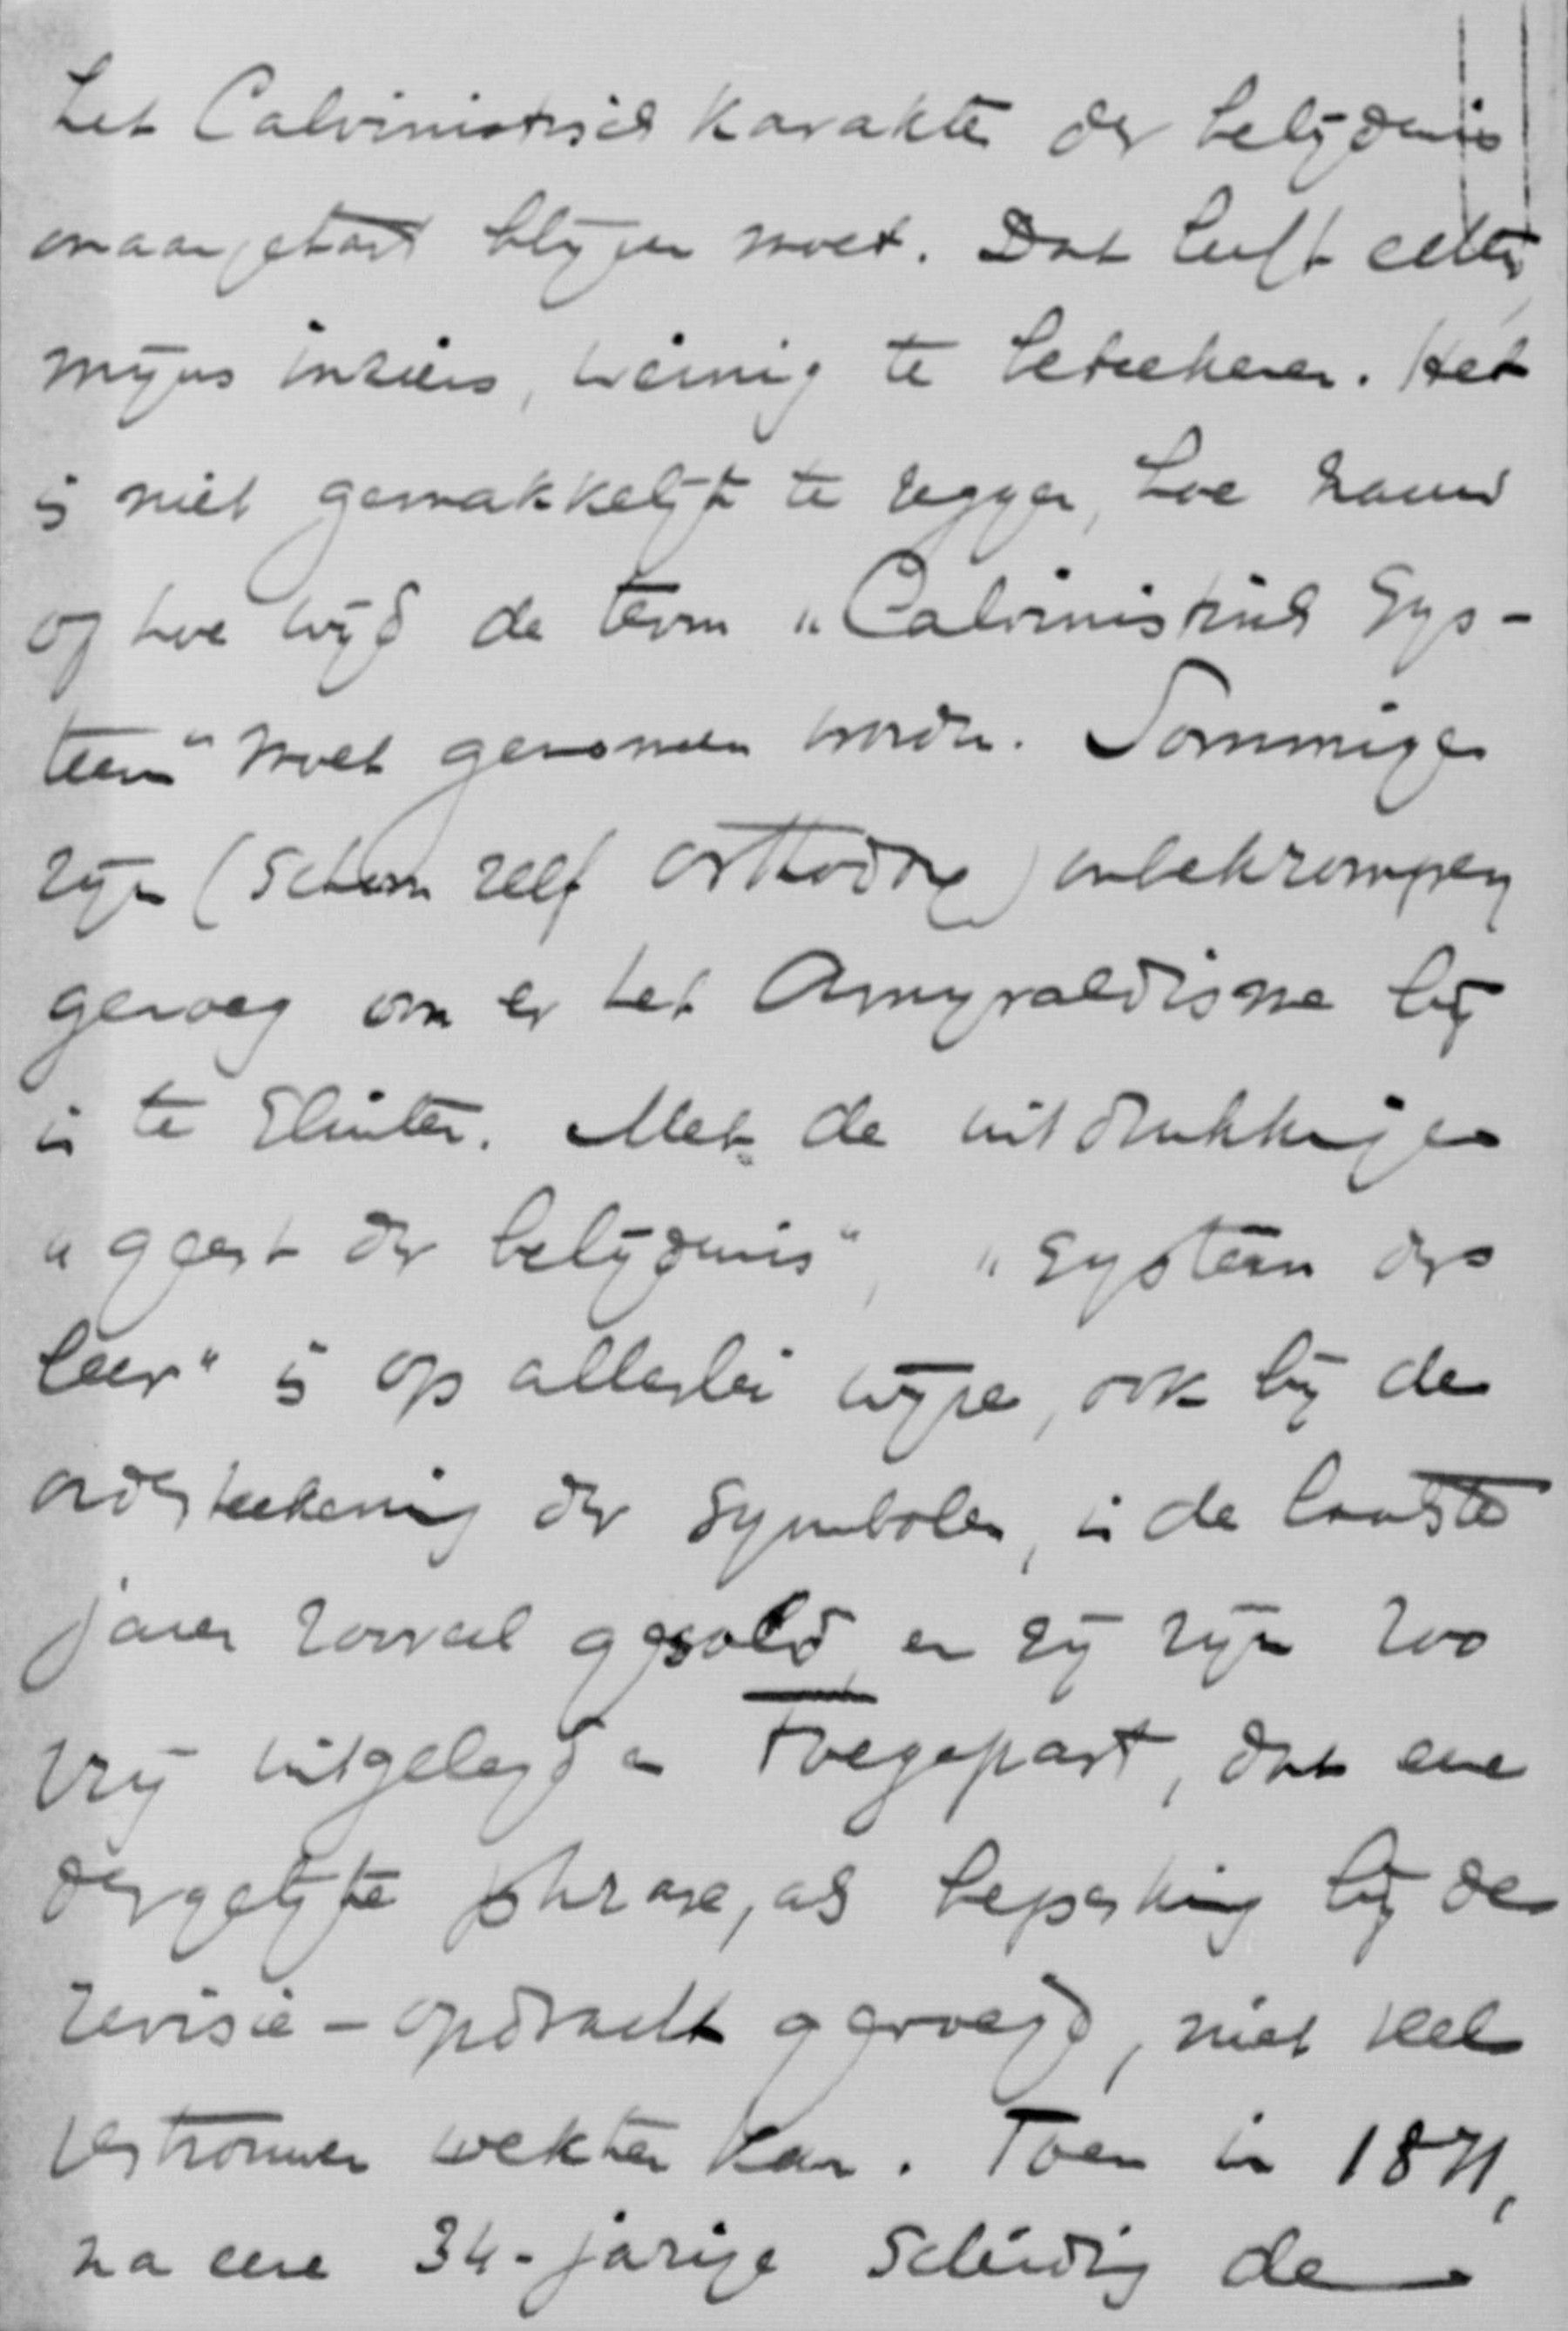 het Calvinistisch karakter der belijdenis
onaangetast blijven moet. Dat heeft echter,
mijns inziens, weinig te beteekenen. Het
is niet gemakkelijk te zeggen, hoe nauw
of hoe wijd de term „Calvinistisch Sys-
teem" moet genomen worden. Sommigen
zijn (schoon zelf orthodox) onbekrompen
genoeg om er het Amyraldisme bij
in te sluiten. Met de uitdrukkingen
„geest der belijdenis", „systeem der
leer" is op allerlei wijze, ook bij de
onderteekening der Symbolen, in de laatste
jaren zooveel gesold, en zij zijn zoo
vrij uitgelegd en toegepast, dat eene
dergelijke phrase, als beperking bij de
revisie-opdracht gevoegd, niet veel
vertrouwen wekken kan. Toen in 1871,
na eene 34-jarige Scheiding de